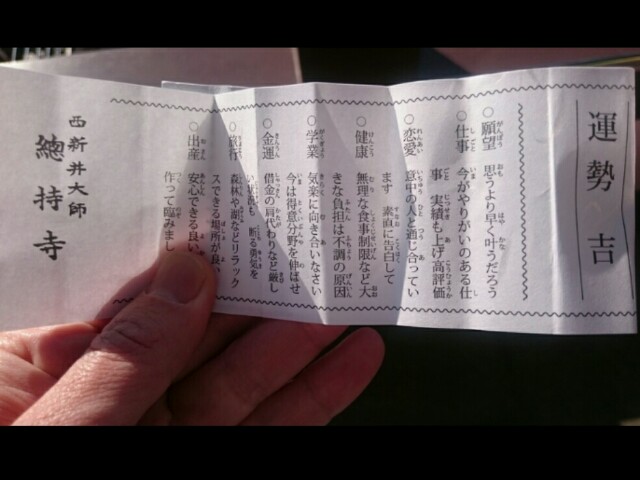 運勢 吉
○願望 思うより早く叶うだろう
○仕事 今がやりがいのある仕
事 実績も上げ高評価
○恋愛 意中の人と通じ合ってい
ます 素直に告白して
○健康 無理な食事制限など大
きな負担は不調の原因
○学業 気楽に向き合いなさい
今は得意分野を伸ばせ
○金運 借金の肩代わりなど厳し
い状況も 断る勇気を
○旅行 森林や湖などリラック
スできる場所が良い
○出産 安心できる良い
作って臨みまし
西新井大師
總持寺